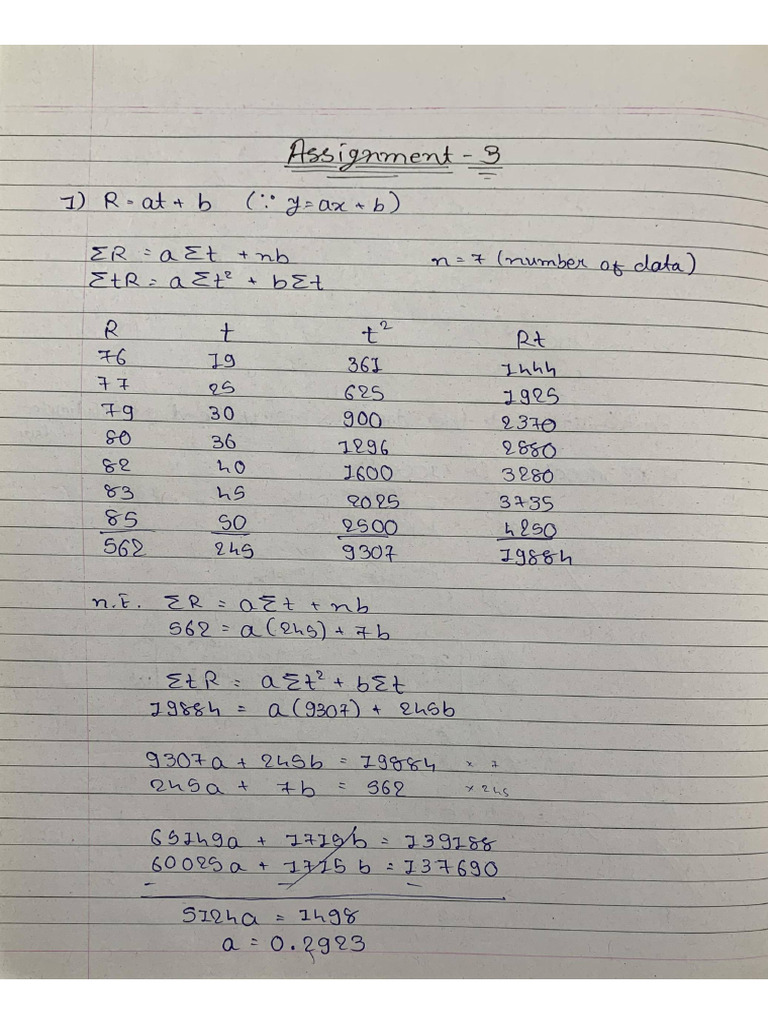 Assignment - 3
1) R = at + b (∵ y = ax + b)
ΣR = aΣt + nb n = 7 (number of data)
ΣtR = aΣt² + bΣt
R t t² Rt
76 19 361 1444
77 25 625 1925
79 30 900 2370
80 36 1296 2880
82 40 1600 3280
83 45 2025 3735
85 50 2500 4250
562 245 9307 19884
n.E. ΣR = aΣt + nb
562 = a(245) + 7b
ΣtR = aΣt² + bΣt
19884 = a(9307) + 245b
9307a + 245b = 19884 × 7
245a + 7b = 562 × 245
65149a + 1715b = 139188
60025a + 1715b = 137690
- - -
5124a = 1498
a = 0.2923